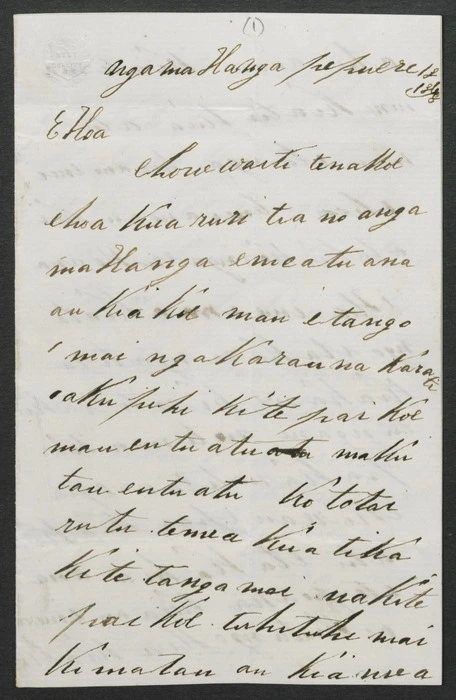 (1)
nga ma Hanga pepuere 18
E Hoa
ehowe waiti tena Koe
ehoa Kua ruri tia no anga
ma Hanga e mea tu ana
au Kia Koe mau e tango
mai nga Karau na Kara
aku puhi Ki te pai Koe
mau e utu atu maku
tau e utu atu Ko totai
ru tu te mea Kua tika
Ki te tanga mai na Kite
pai Koe tuhituhi mai
Ki matau au Kia mea